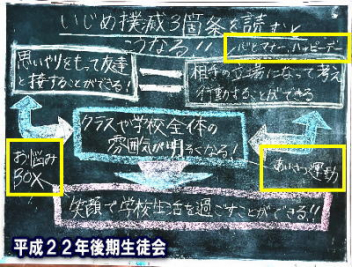 いじめ撲滅3箇条を読むと
つながる!!
ハッピーデー
思いやりをもって友達
と接することができる!
相手の立場になって考え
行動することができる
クラスや学校全体の
雰囲気が明るくなる!
お悩み
BOX
あいさつ運動
笑顔で学校生活を過ごすことができる!!
平成22年後期生徒会